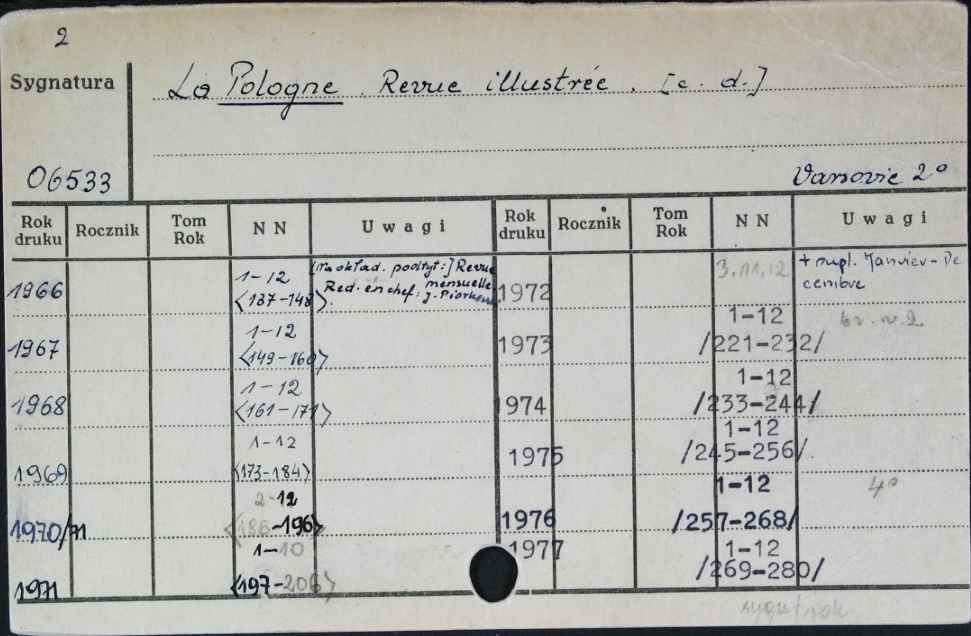 2
Sygnatura
La Pologne. Revue illustrée. [c. d.]
06533
Varsovie 2º
Rok druku Rocznik Tom Rok N N Uwagi Rok druku Rocznik Tom Rok N N Uwagi
1966 1-12 <137-148> [Na okład. podtyt:] Revue mensuelle
Red. en chef: J.
1967 1-12 <149-160>
1968 1-12 <161-171>
1969 1-12 <173-184>
1970/71 2-12 <186-196>
1971 1-10 <197-206>
1972 3.11,12 + supl. Janvier-Decembre
1973 1-12 /221-232/ br. nr. 2
1974 1-12 /233-244/
1975 1-12 /245-256/
1976 1-12 /257-268/ 4º
1977 1-12 /269-280/